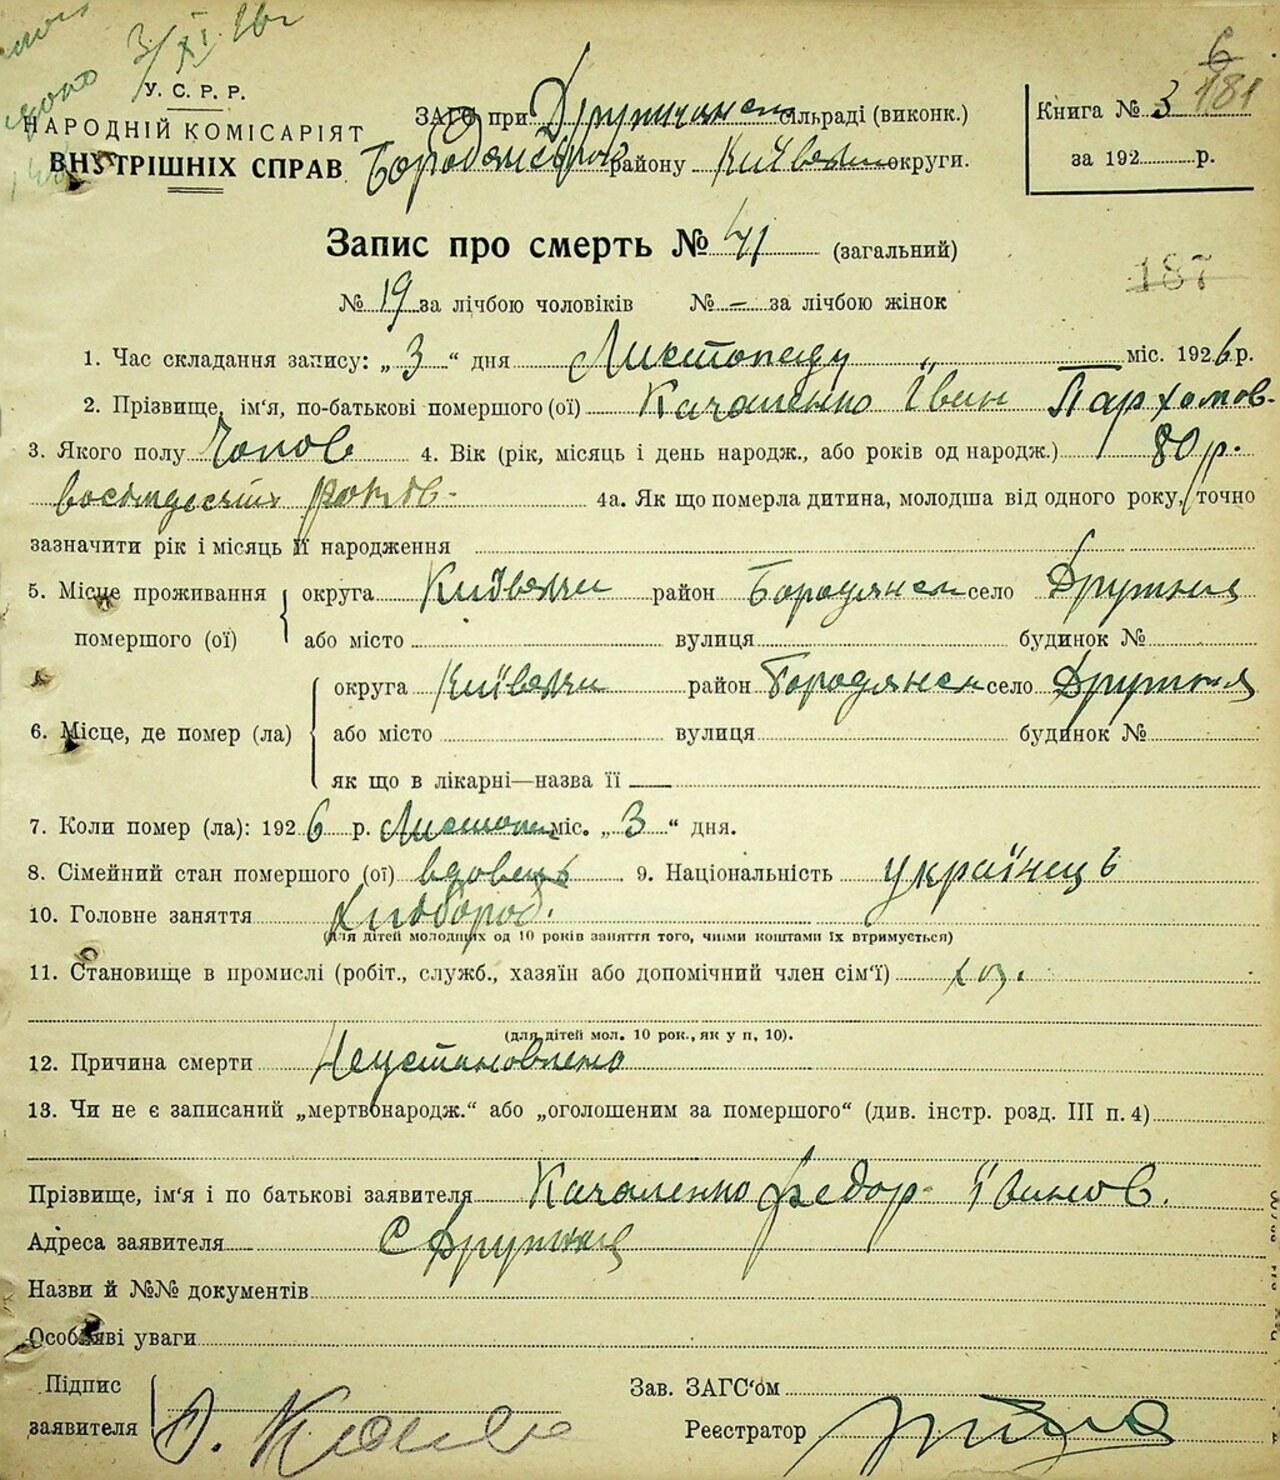 3/XI 26 г
6
181
У. С. Р. Р.
НАРОДНІЙ КОМІСАРІЯТ
ВНУТРІШНІХ СПРАВ
ЗАГС при Дружчанск сільраді (виконк.)
Бородянск району Київськ округи.
Книга № 3
за 192 р.
Запис про смерть № 41 (загальний)
187
№ 19 за лічбою чоловіків № – за лічбою жінок
1. Час складання запису: „ 3 “ дня Листопаду міс. 1926 р.
2. Прізвище, ім'я, по-батькові помершого (ої) Качаленко Іван Пархомов.
3. Якого полу Чолов 4. Вік (рік, місяць і день народж., або років од народж.) 80 р.
восімдесять років. 4а. Як що померла дитина, молодша від одного року, точно
зазначити рік і місяць її народження
5. Місце проживання помершого (ої) округа Київськ район Бородянск село Дружня
або місто вулиця будинок №
6. Місце, де помер (ла) округа Київськ район Бородянск село Дружня
або місто вулиця будинок №
як що в лікарні—назва її —
7. Коли помер (ла): 1926 р. Листоп міс. „ 3 “ дня.
8. Сімейний стан помершого (ої) вдовець 9. Національність українець
10. Головне заняття хлібороб.
(для дітей молодших од 10 років заняття того, чиїми коштами їх втримується)
11. Становище в промислі (робіт., служб., хазяїн або допомічний член сім'ї) хоз.
(для дітей мол. 10 рок., як у п, 10).
12. Причина смерти Неустановлено
13. Чи не є записаний „мертвонародж.“ або „оголошеним за помершого“ (див. інстр. розд. III п. 4)
Прізвище, ім'я і по батькові заявителя Качаленко Федор Іванов.
Адреса заявителя С Дружня
Назви й №№ документів
Особливі уваги
Підпис
заявителя
Зав. ЗАГС'ом
Реєстратор